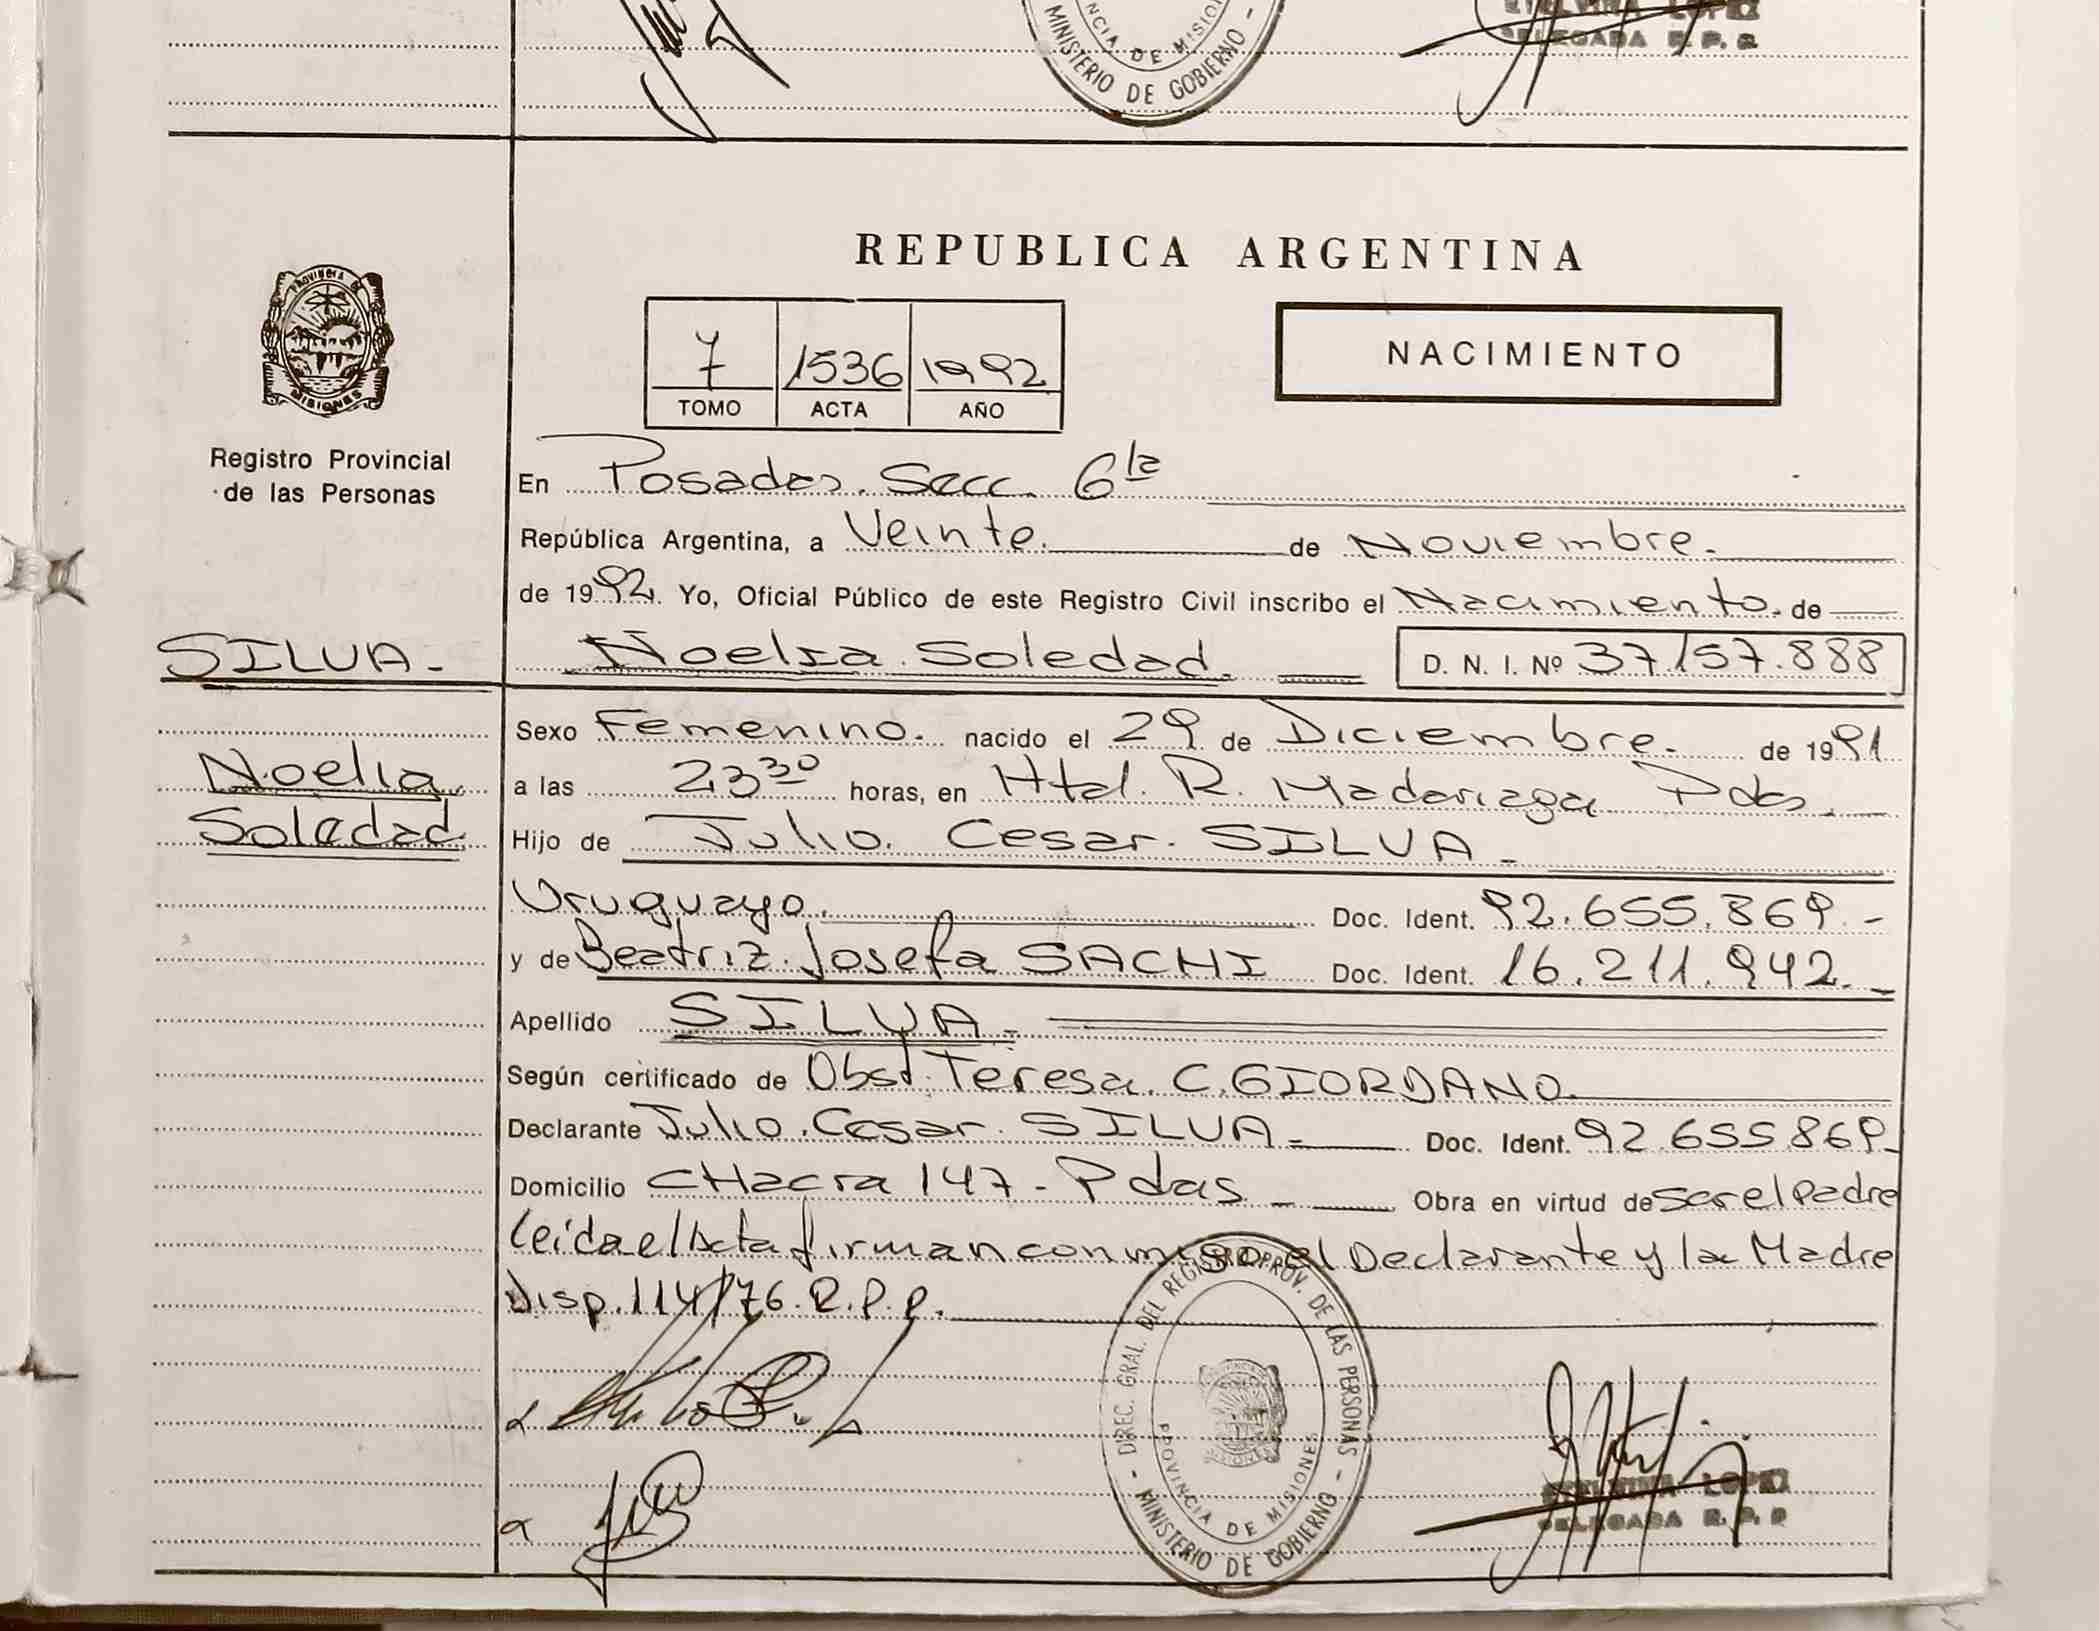 NCIA DE MISIO
MINISTERIO DE GOBIERNO -
LOPEZ
DELEGADA R. P. P.
REPUBLICA ARGENTINA
PROVINCIA DE
MISIONES
7 1536 1992
TOMO ACTA AÑO
NACIMIENTO
Registro Provincial
de las Personas
En Posadas. Secc. 6ta
República Argentina, a Veinte. de Noviembre.
de 1992. Yo, Oficial Público de este Registro Civil inscribo el Nacimiento. de
SILVA.- Noelia. Soledad. D. N. I. Nº 37.157.888
Sexo Femenino. nacido el 29 de Diciembre. de 1991
Noelia.
Soledad
a las 23 30 horas, en Htal. R. Madariaga Pdas.
Hijo de Julio. Cesar. SILVA.-
Uruguayo. Doc. Ident. 92.655.869.-
y de Beatriz. Josefa SACHI Doc. Ident. 16.211.942.-
Apellido SILVA.-
Según certificado de Obst. Teresa. C. GIORDANO.
Declarante Julio. Cesar. SILVA.- Doc. Ident. 92.655.869-
Domicilio CHacra 147 - Pdas.- Obra en virtud de ser el Padre
Leida el Acta firman conmigo el Declarante y la Madre
Disp. 114/76. R.P.P.
DIREC. GRAL. DEL REGISTRO PROV. DE LAS PERSONAS -
PROVINCIA DE MISIONES
MINISTERIO DE GOBIERNO -
LOPEZ
DELEGADA R. P. P